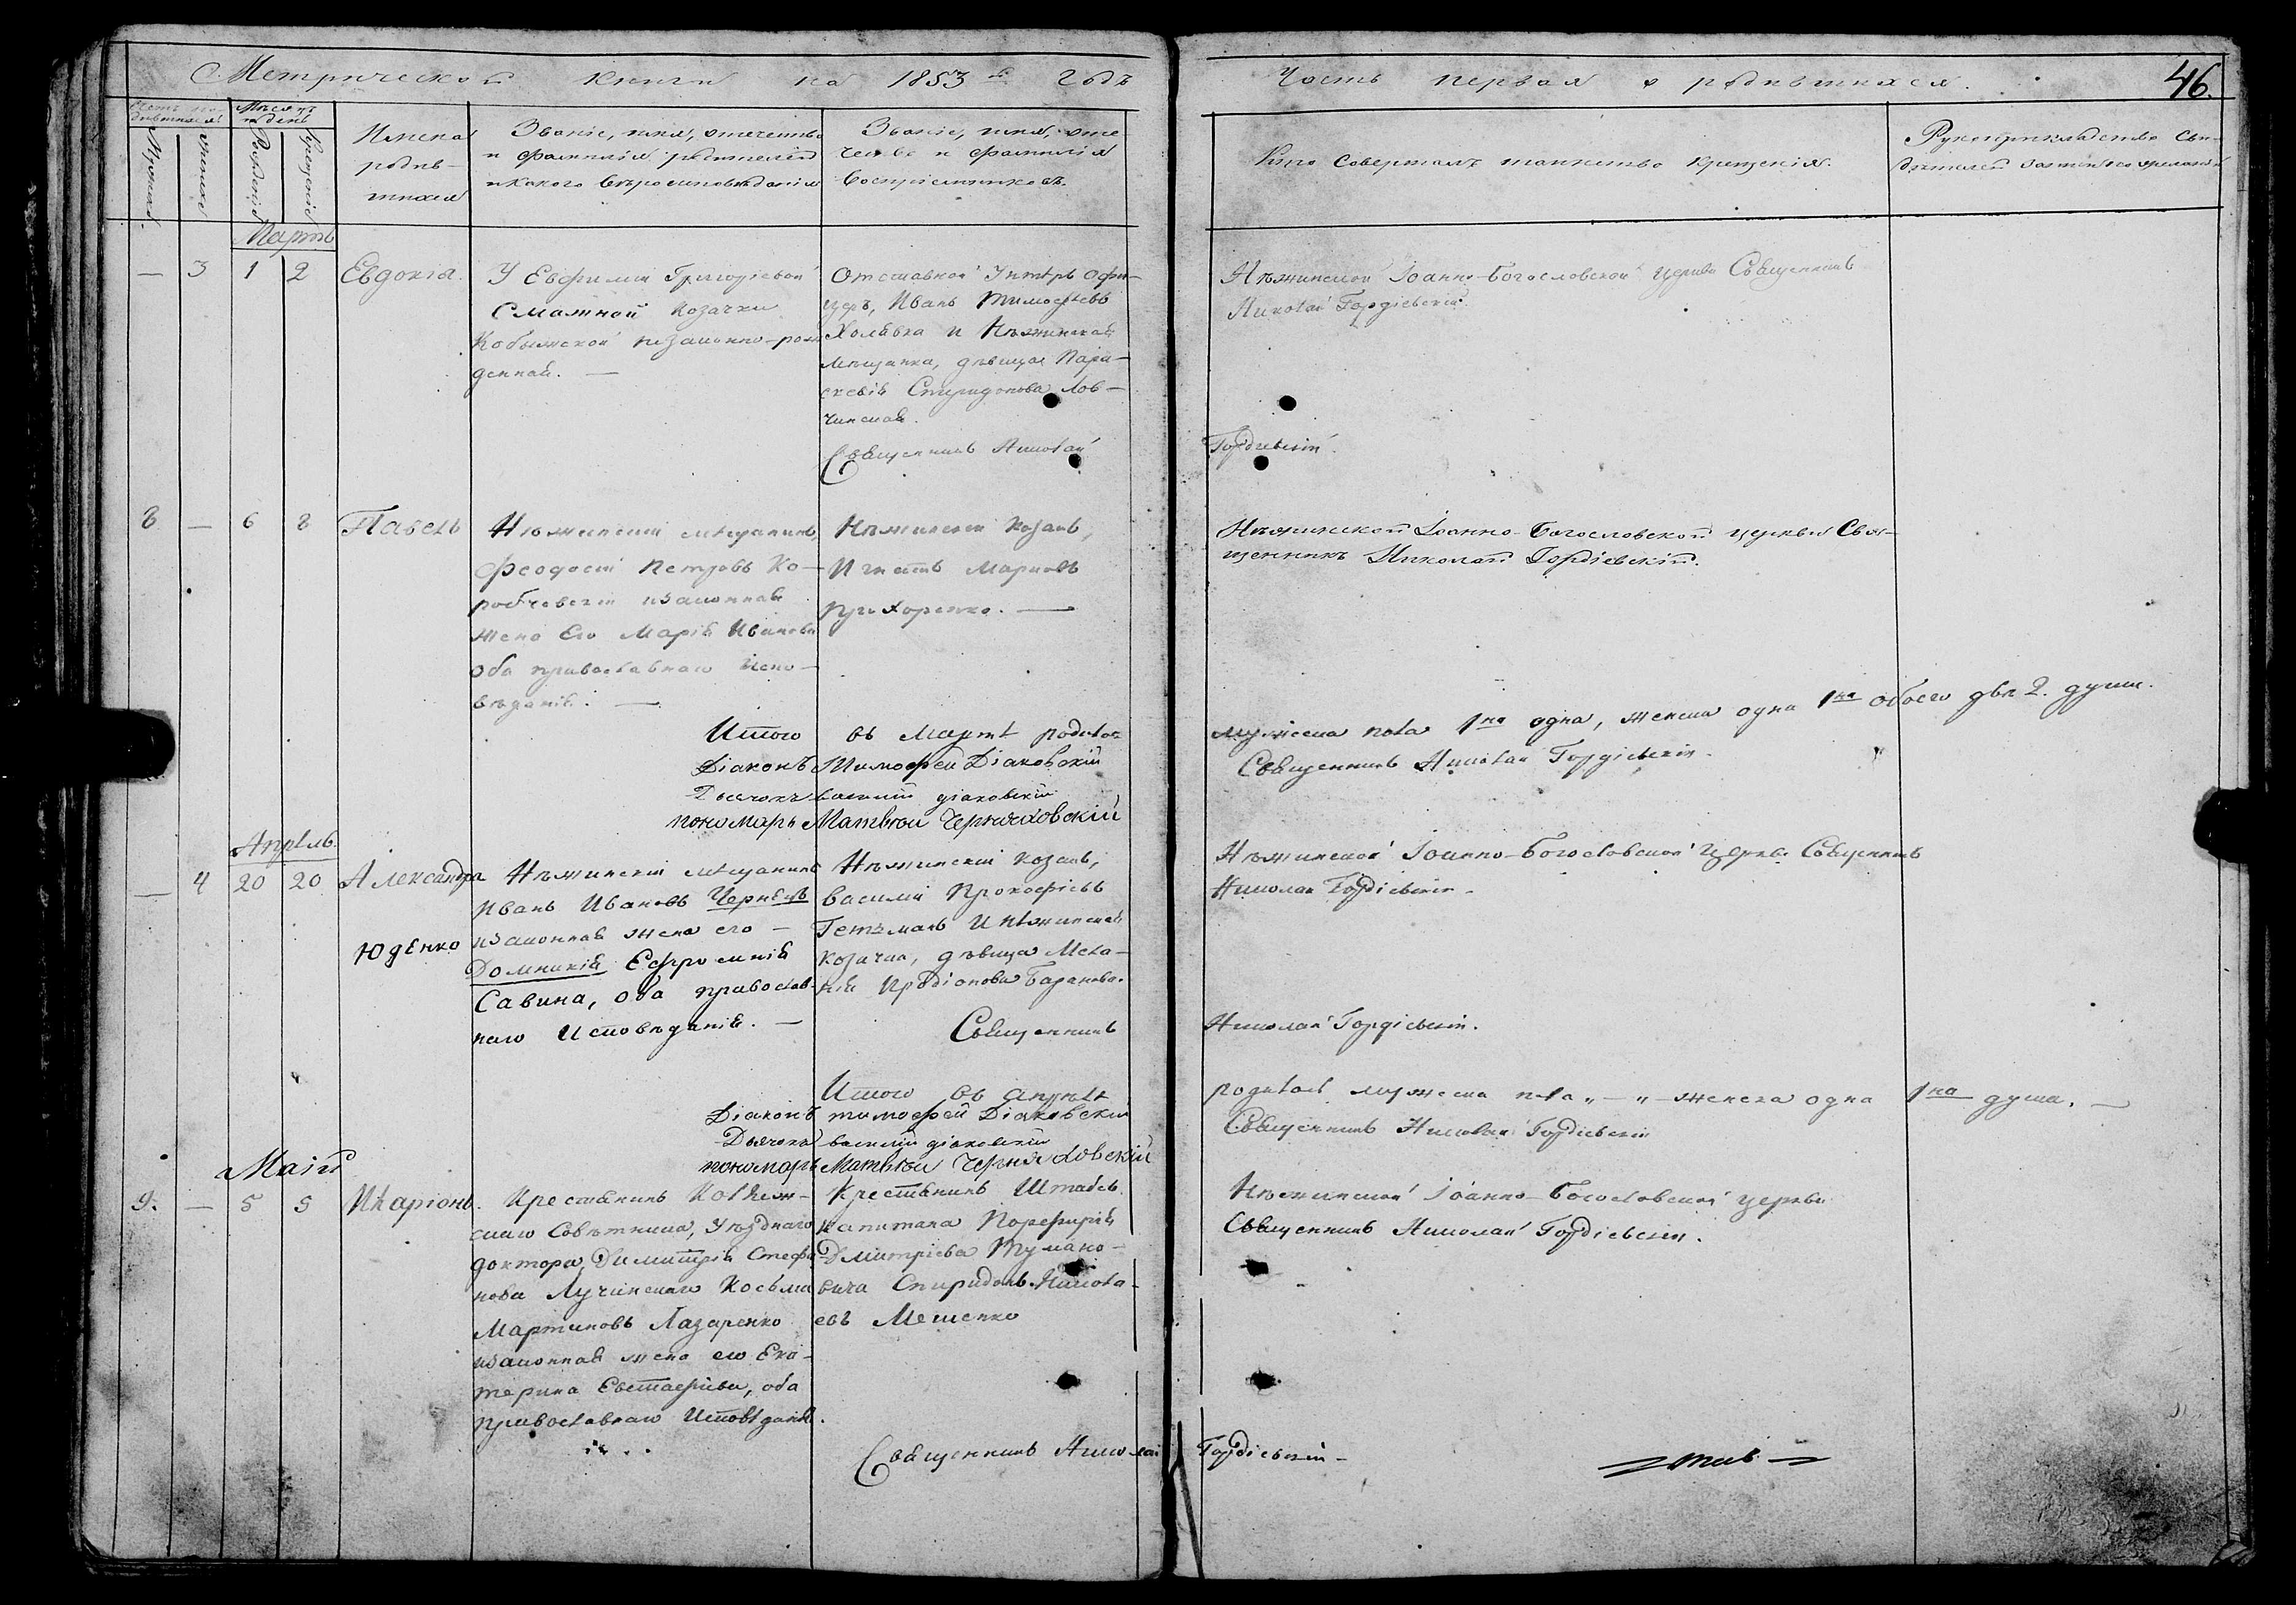 Метрической книги на 1853й годъ
Часть первая о родившихся.
46.
Счетъ родившихся
Мѣсяцъ и день
Мужеска
Женска
Рожденія
Крещенія
Имена родившихся
Званіе, имя, отечество
и фамилія родителей
и какого вѣроисповѣданія
Званіе, имя, отечество и фамилія
воспріемниковъ.
Кто совершалъ таинство крещенія.
Рукоприкладство свидѣтелей
Мартъ
— 3 1 2 Евдокіа.
У Евфиміи Григоріевой
козачки
незаконно-рож
денная. —
Отставной Унтеръ Офи-
церъ, Иванъ Тимофѣевъ
и Нѣжинская
мѣщанка, дѣвица Пара-
скевія Спиридонова Лов-
чинская.
Священникъ Николай
Нѣжинской Іоанно-Богословской церкви Священникъ
Николай Гордіевскій.
Гордіевскій.
8 — 6 8 Павелъ
Нѣжинскій мѣщанинъ,
Феодосій Петровъ Ко-
робчевскій и законная
жена его Марія Иванова
оба православнаго испо-
вѣданія. —
Нѣжинскій козакъ,
Игнатъ Марковъ
Прихоренко. —
Нѣжинской Іоанно-Богословской церкви Свя-
щенникъ Николай Гордіевскій.
Итого въ Мартѣ родилось
мужеска пола 1на одна, женска одна 1на обоего двѣ 2. души.
Діаконъ Тимофей Діаковскій
Священникъ Николай Гордіевскій.
Дьячокъ Василій Діаковскій
Пономарь Матвѣй Черняховскій
Апрѣль.
— 4 20 20 Александра
Юденко
Нѣжинскій мѣщанинъ
Иванъ Ивановъ Чернецъ
и законная жена его —
Домникія Ефросинія
Савина, оба православ-
наго исповѣданія. —
Нѣжинскій козакъ,
Василій Прокофіевъ
Гетманъ и Нѣжинская
козачка, дѣвица Мела-
нія Иродіонова Баранова.
Священникъ
Нѣжинской Іоанно-Богословской церкви Священникъ
Николай Гордіевскій.
Николай Гордіевскій.
Итого въ Апрѣлѣ
родилось мужеска пола „—„ женска одна 1на душа. —
Діаконъ Тимофей Діаковскій
Священникъ Николай Гордіевскій
Дьячокъ Василій Діаковскій
Пономарь Матвѣй Черняховскій
Маій
9. — 5 5 Иларіонъ.
Крестьянинъ Коллеж-
скаго Совѣтника, Уѣзднаго
доктора, Димитрія Стефа
нова Лучинскаго Косьма
Мартиновъ Лазаренко
и законная жена его Ека-
терина Евстафіева, оба
православнаго исповѣданія.
Крестьянинъ Штабсъ
капитана Порфирія
Дмитріева Тумано-
вича Спиридонъ Никола-
евъ Мешенко
Священникъ Николай
Нѣжинской Іоанно-Богословской церкви
Священникъ Николай Гордіевскій.
Гордіевскій —